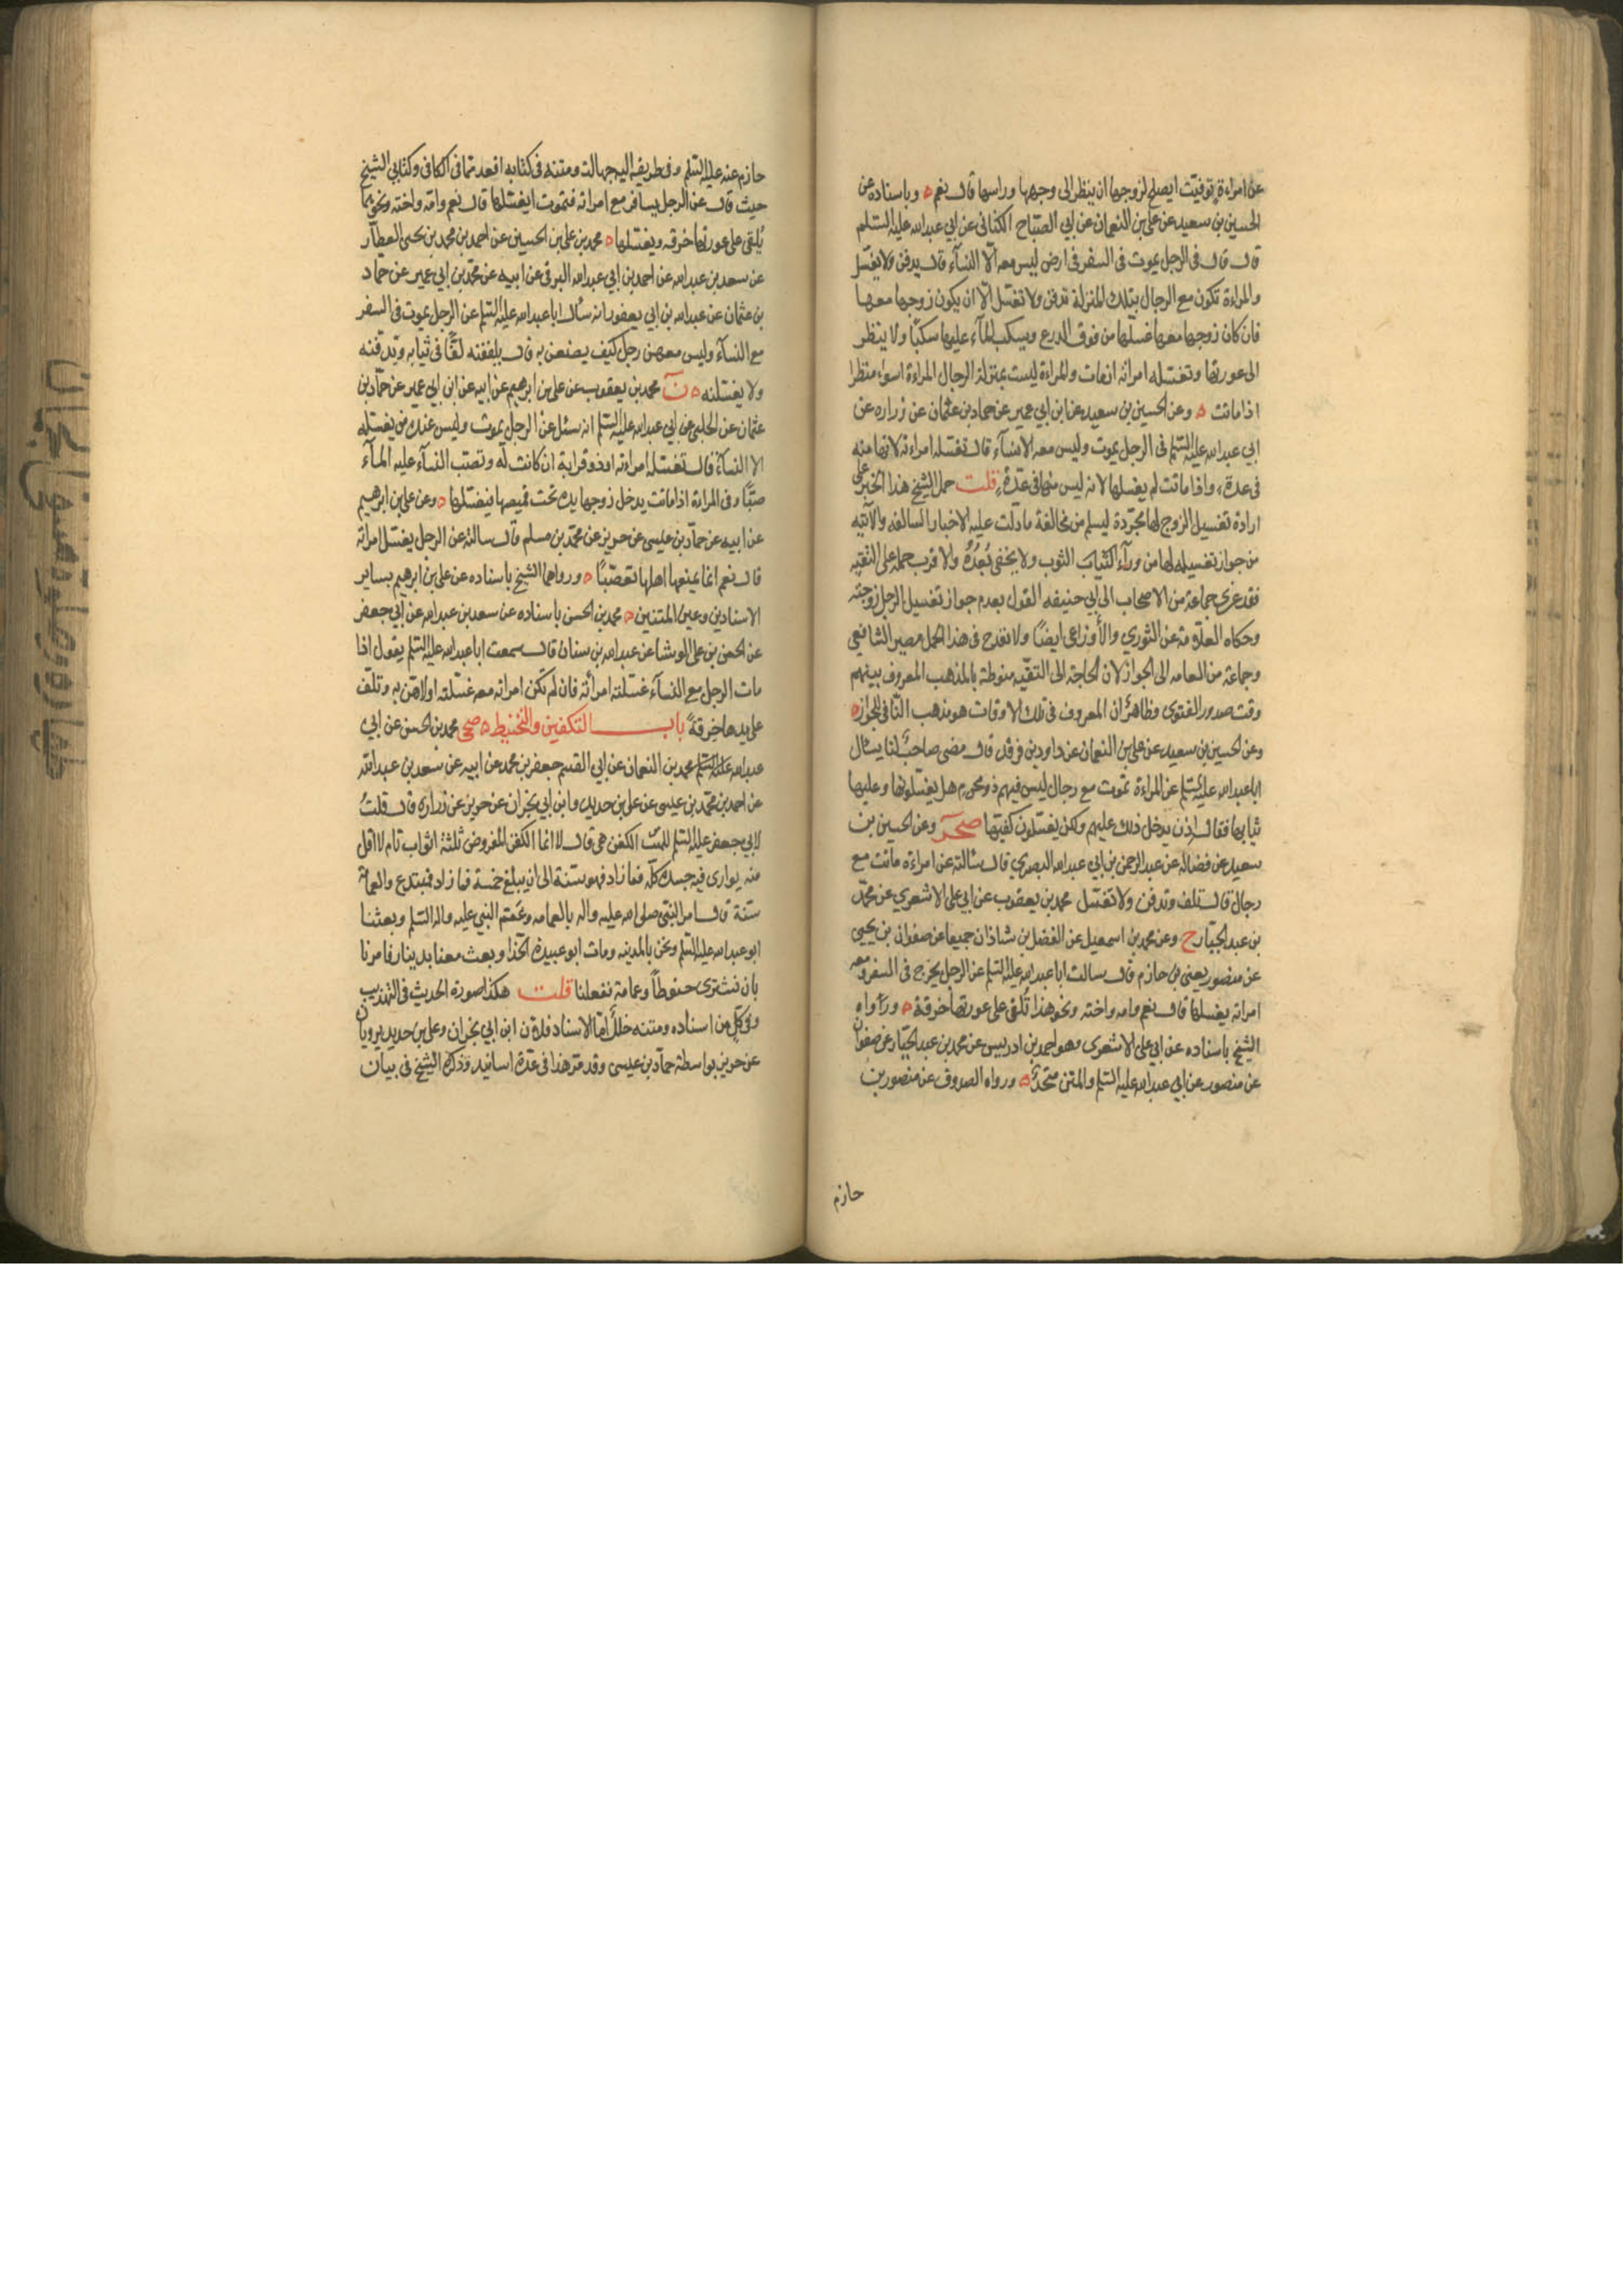 عن امراءة توفيت ايصلح لزوجها ان ينظر الى وجهها وراسها قال نعم ه وباسناده عن
الحسين بن سعيد عن علي بن النعمان عن ابي الصباح الكناني عن ابي عبدالله عليه السلام
قال قال في الرجل يموت في السفر في ارض ليس معه الا النسآء قال يدفن ولا يغسل
والمراءة تكون مع الرجال بتلك المنزلة تدفن ولا تغسل الا ان يكون زوجها معها
فان كان زوجها معها غسلها من فوق الدرع ويسكب المآء عليها سكبًا ولا ينظر
الى عورتها وتغسله امراته ان مات والمراءة ليست بمنزلة الرجال المراءة اسواء منظرا
اذا ماتت ه وعن الحسين بن سعيد عن ابن ابي عمير عن حماد بن عثمان عن زراره عن
ابي عبدالله عليه السلم في الرجل يموت وليس معه الا نسآء قال تغسله امراءته لانها منه
في عدة، واذا ماتت لم يغسلها لانه ليس منها في عدّة، قلت حمل الشيخ هذا الخبر على
ارادة تغسيل الزوج لها مجرّدة ليسلم من مخالفة ما دلّت عليه الاخبار السالفه والآتيه
من جواز تغسيله لها من ورآء الثياب الثوب ولا يخفى بُعْدُهُ والاقرب حمله على التقيه
فقد عزى جماعة من الاصحاب الى ابي حنيفه القول بعدم جواز تغسيل الرجل زوجته
وحكاه العلامة عن الثوري والأوزاعي ايضًا ولا يقدح في هذا الحمل مصير الشافعي
وجماعة من العامه الى الجواز لان الحاجة الى التقيّه منوطة بالمذهب المعروف بينهم
وقت صدور الفتوى وظاهرٌ ان المعروف في تلك الاوقات هو مذهب النافي للجواز ه
وعن الحسين بن سعيد عن علي بن النعمان عن داود بن فرقد قال مضى صاحبٌ لنا يسال
ابا عبدالله عليه السلم عن المراءة تموت مع رجال ليس فيهم ذو محرم هل يغسلونها وعليها
ثيابها فقال اذن يدخل ذلك عليهم ولكن يغسلون كفيها صحر وعن الحسين بن
سعيد عن فضاله عن عبد الرحمن بن ابي عبدالله البصري قال سالته عن امراءة ماتت مع
رجال قال تلف وتدفن ولا تغسل محمد بن يعقوب عن ابي علي الاشعري عن محمّد
بن عبد الجبّار ح وعن محمد بن اسمعيل عن الفضل بن شاذان جميعا عن صفوان بن يحيى
عن منصور يعني بن حازم قال سالت ابا عبدالله عليه السلم عن الرجل يخرج في السفر ومعه
امراته يغسلها قال نعم وامه واخته ونحو هذا تُلقى على عورتها خرقة ه ورواه
الشيخ باسناده عن ابي علي الاشعري وهو احمد بن ادريس عن محمد بن عبد الجبّار عن صفوان
عن منصور عن ابي عبدالله عليه السلم والمتن متحدٌ ه ورواه الصدوق عن منصور بن
حازم
حازم عنه عليه السلم وفي طريقه اليه جهالة ومتنه في كتابه اقعد مما في الكافي وكتابي الشيخ
حيث قال عن الرجل يسافر مع امراته فتموت ايغسلها قال نعم وامه واخته ونحوهما
يُلقى على عورتها خرقه ويغسلها ه محمد بن علي بن الحسين عن احمد بن محمد بن يحيى العطار
عن سعد بن عبدالله عن احمد بن ابي عبدالله البرقي عن ابيه عن محمّد بن ابي عمير عن حماد
بن عثمان عن عبدالله بن ابي يعفور انه سأل ابا عبدالله عليه السلم عن الرجل يموت في السفر
مع النسآء وليس معهن رجل كيف يصنعن به قال يلففنه لفًّا في ثيابه ويدفنه
ولا يغسلنه ه ن محمد بن يعقوب عن علي بن ابرهيم عن ابيه عن ابن ابي عمير عن حمّاد بن
عثمان عن الحلبي عن ابي عبدالله عليه السلم انه سئل عن الرجل يموت وليس عنده من يغسله
الا النسآء قال تغسله امراءته او ذو قرابة ان كانت له وتصب النسآء عليه المآء
صبًّا وفي المراة اذا ماتت يدخل زوجها يده تحت قميصها فيغسلها ه وعن علي بن ابرهيم
عن ابيه عن حمّاد بن عيسى عن حريز عن محمّد بن مسلم قال سالته عن الرجل يغسل امراته
قال نعم انما يمنعها اهلها تعصّبًا ه ورواهما الشيخ باسناده عن علي بن ابرهيم بساير
الاسنادين وعين المتنين ه محمد بن الحسن باسناده عن سعد بن عبدالله عن ابي جعفر
عن الحسن بن علي الوشا عن عبدالله بن سنان قال سمعت ابا عبدالله عليه السلم يقول اذا
مات الرجل مع النسآء غسلته امرأته فان لم تكن امراته معه غسلته اولاهن به وتلف
على يدها خرقةً باب التكفين والتحنيط ه صحي محمد بن الحسن عن ابي
عبدالله محمد بن النعمان عن ابي القسم جعفر بن محمد عن ابيه عن سعد بن عبدالله
عن احمد بن محمّد بن عيسى عن علي بن حديد وابن ابي نجران عن حريز عن زرارة قال قلتُ
لابي جعفر عليه السلم للميت الكفن هي قال لا انما الكفن المفروض ثلثة اثواب تام لا اقل
منه يوارى فيه جسده كلّه فما زاد فهو سنة الى ان يبلغ خمسة فما زاد فمبتدع والعمامة
سنة قال امر النبي صلى الله عليه واله بالعمامه وعُمّم النبي عليه واله السلم وبعثنا
ابو عبدالله عليه السلم ونحن بالمدينه ومات ابو عبيدة الحذا وبعث معنا بدينار فامرنا
بان نشتري حنوطًا وعمامة ففعلنا قلت هكذا صورة الحديث في التهذيب
وفي كلٍ من اسناده ومتنه خللٌ امّا الاسناد فلان ابن ابي نجران وعلي بن حديد يرويان
عن حريز بواسطة حمّاد بن عيسى وقد مرّ هذا في عدّة اسانيد وذكره الشيخ في بيان